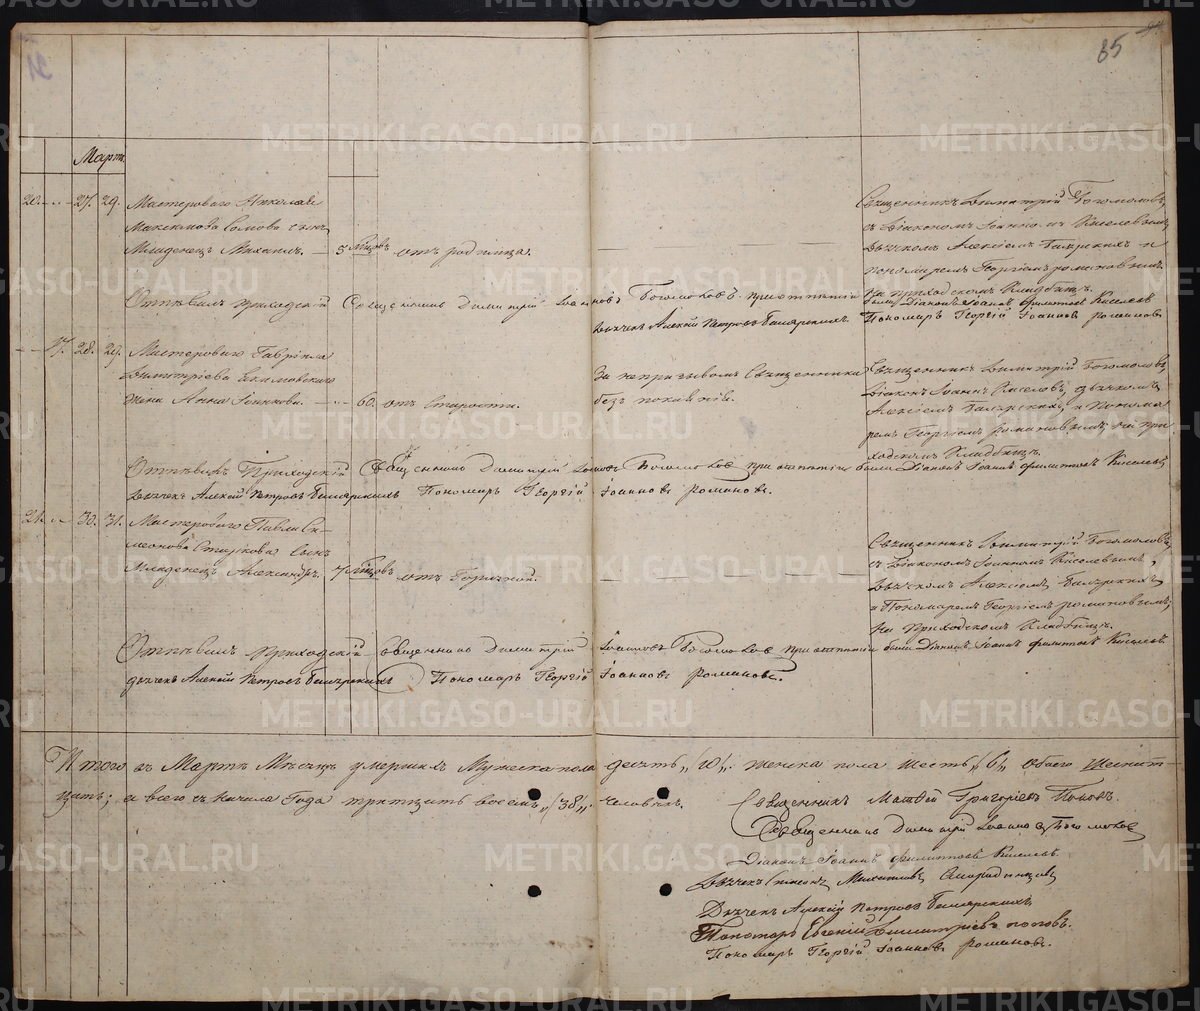 85
Мартъ.
20. 27. 29. Мастероваго Николая
Максимова сынъ
Младенецъ Михаилъ. 5 мѣсяцовъ отъ родимца.
Священникъ Димитрій Богомоловъ
съ Діакономъ Іоанномъ Киселевымъ,
дьячкомъ Алексіемъ и
пономаремъ Георгіемъ Романовымъ.
На приходскомъ кладбищѣ.
Отпѣвалъ приходскій Священникъ Димитрій Іоанновъ Богомоловъ при отпѣтіи были Діаконъ Іоаннъ Филиповъ Киселевъ
дьячекъ Алексѣй Петровъ Пономарь Георгій Іоанновъ Романовъ
17. 28. 29. Мастероваго Гавріила
Димитріева
жена Анна 60. отъ старости.
За непризывомъ священника
безъ покаянія.
Священникъ Димитрій Богомоловъ,
Діаконъ Іоаннъ Киселевъ, дьячкомъ
Алексіемъ и Понома
ремъ Георгіемъ Романовымъ, на при
ходскомъ кладбищѣ.
Отпѣвалъ Приходскій Священникъ Димитрій Іоанновъ Богомоловъ при отпѣтіи были Діаконъ Іоаннъ Филиповъ Киселевъ
дьячекъ Алексѣй Петровъ Пономарь Георгій Іоанновъ Романовъ.
21. 30. 31. Мастероваго Павла Си-
меонова Старкова сынъ
Младенецъ Александръ. 7 мѣсяцовъ отъ горячкой.
Священникъ Димитрій Богомоловъ,
съ Діакономъ Іоанномъ Киселевымъ,
дьячкомъ Алексіемъ
и Пономаремъ Георгіемъ Романовымъ;
На приходскомъ кладбищѣ.
Отпѣвалъ приходскій священникъ Димитрій Іоанновъ Богомоловъ при отпѣтіи были Діаконъ Іоаннъ Филиповъ Киселевъ
дьячекъ Алексѣй Петровъ Пономарь Георгій Іоанновъ Романовъ.
Итого въ Мартѣ Мѣсяцѣ умершихъ Мужеска пола десять „(10„). женска пола шесть „(6„) обоего шеснат-
цать; а всего съ начала года тритцать восемь „(38„). человѣкъ.
Священникъ Матвѣй Григорьевъ Поповъ.
Священникъ Димитрій Іоанновъ Богомоловъ
Діаконъ Іоаннъ Филиповъ Киселевъ
Дьячекъ Симеонъ Михайловъ
Дьячекъ Алексѣй Петровъ
Пономарь Евгеній Димитріевъ Поповъ.
Пономарь Георгій Іоанновъ Романовъ.
METRIKI.GASO-URAL.RU